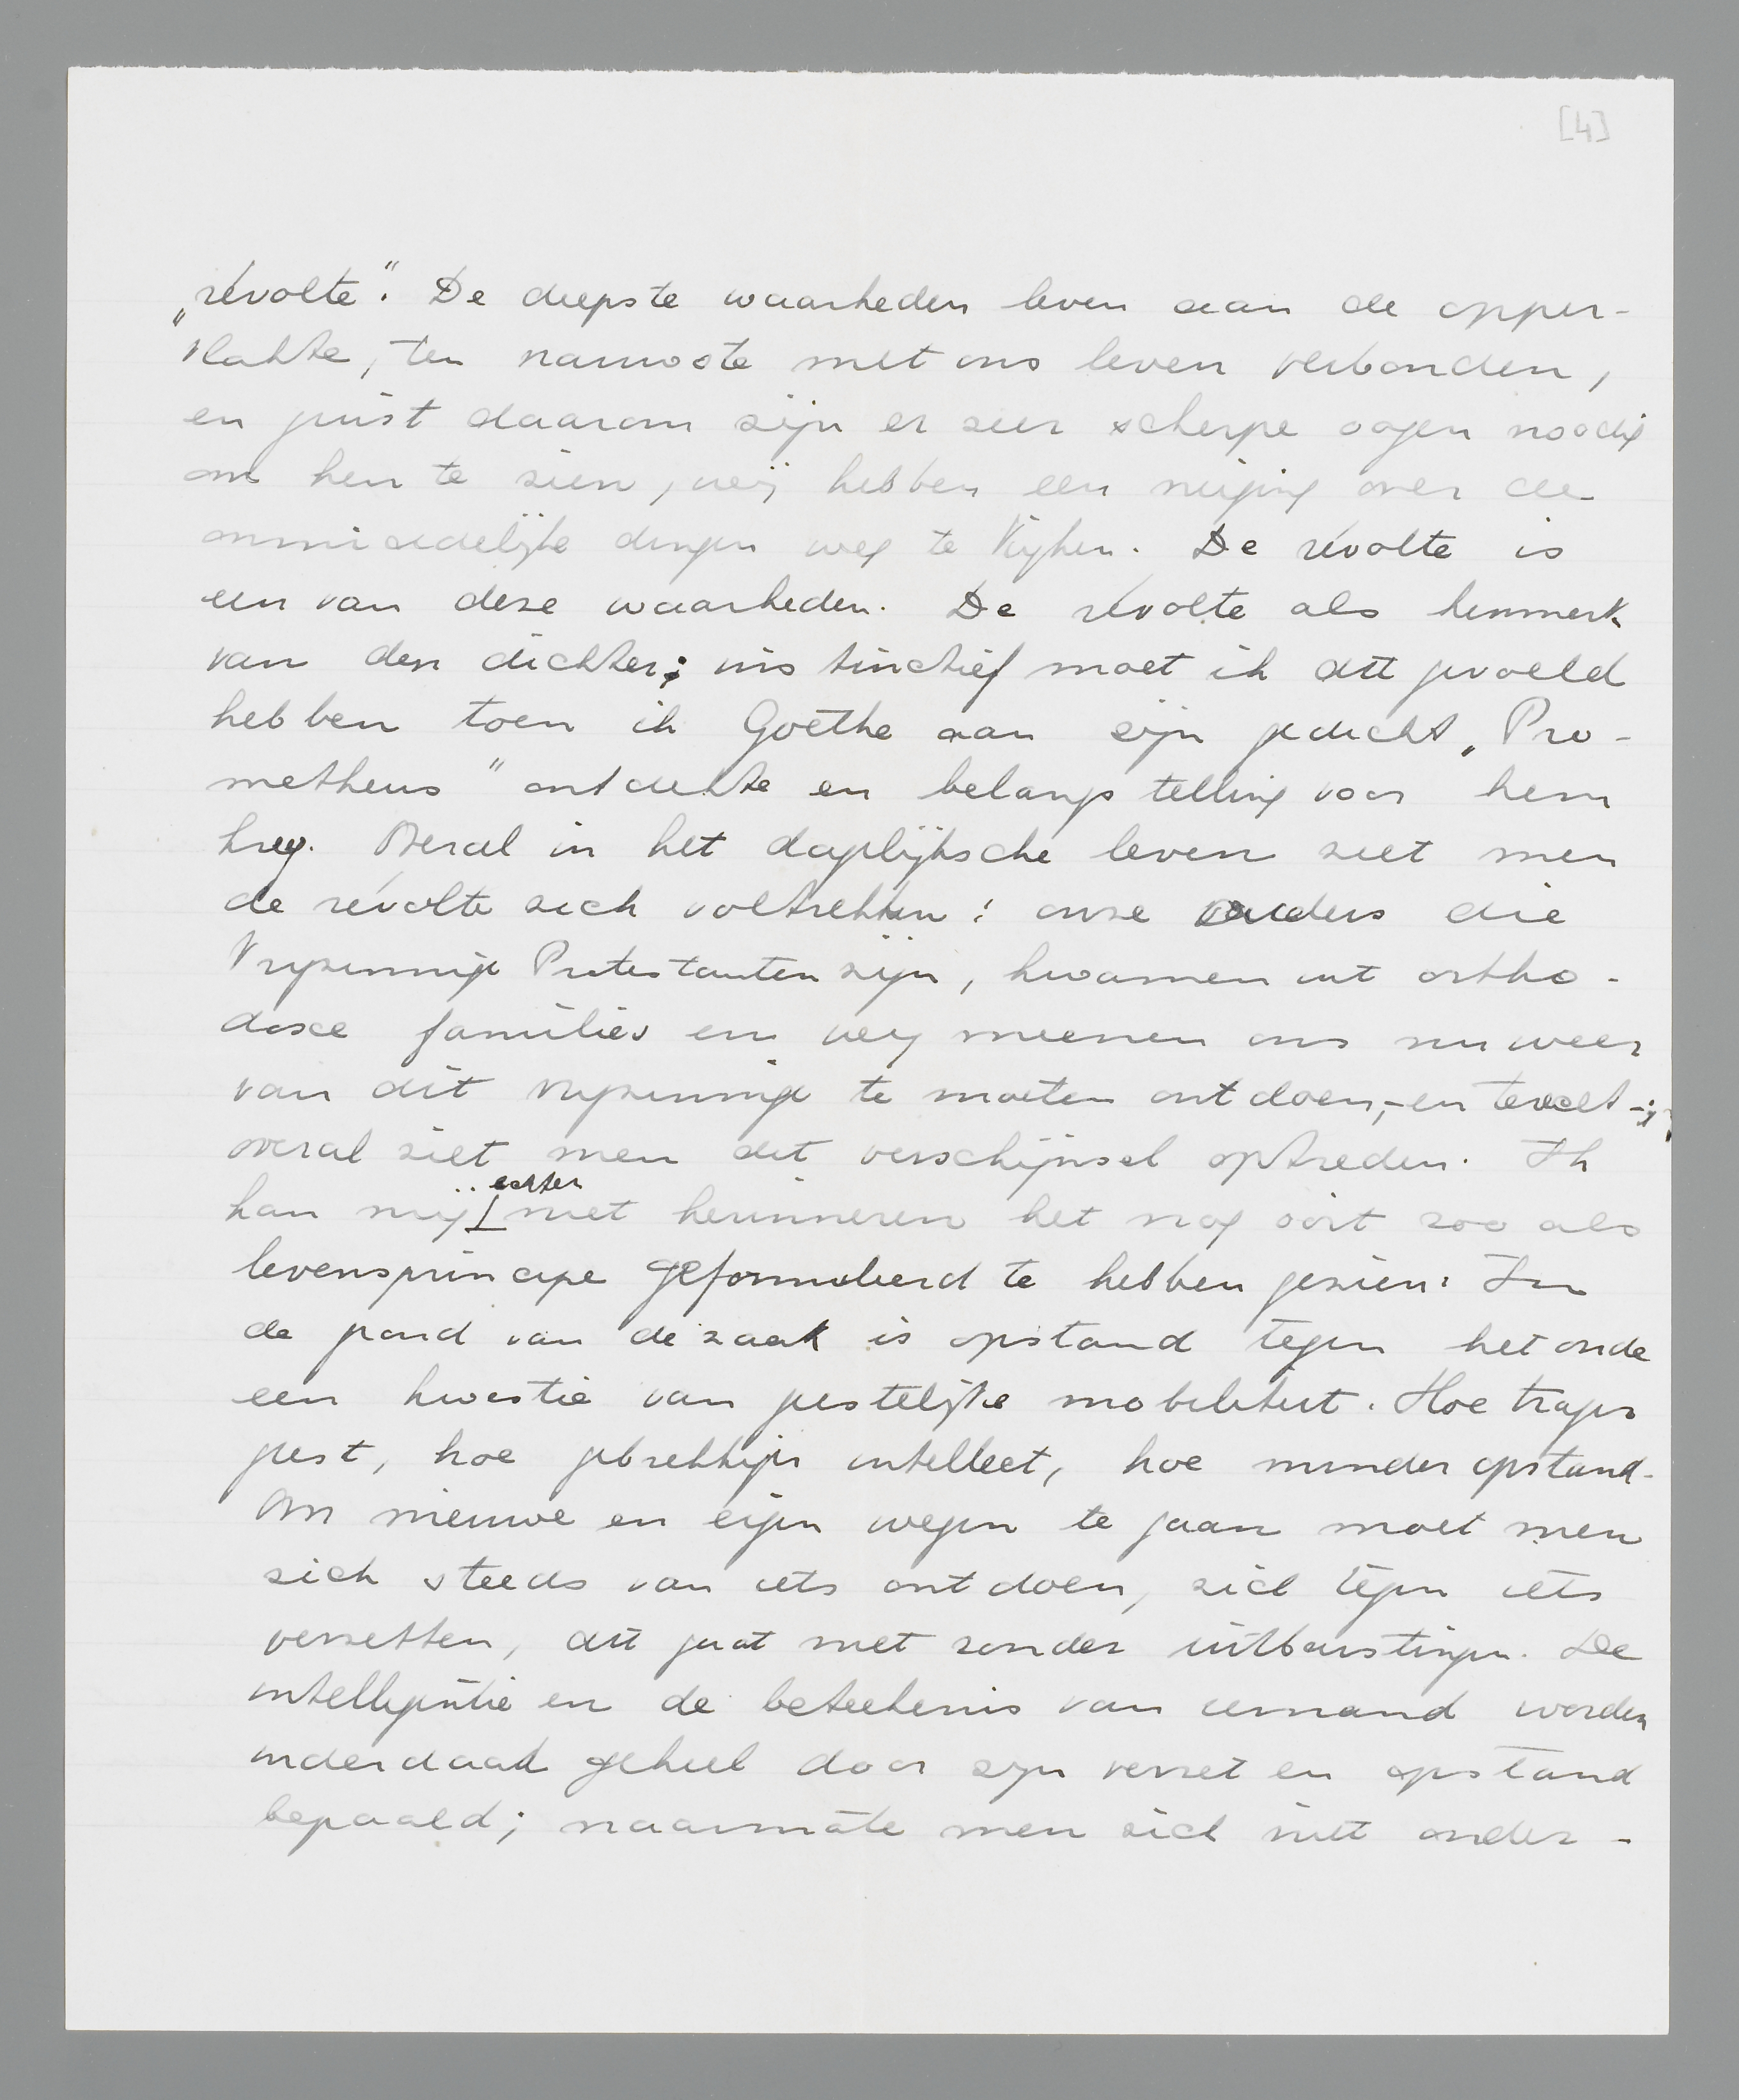 [4]
„révolte”. De diepste waarheden leven aan de opper-
vlakte, ten nauwste met ons leven verbonden,
en juist daarom zijn er zeer scherpe oogen noodig
om hen te zien, wij hebben een neiging over de
onmiddelijke dingen weg te kijken. De révolte is
een van deze waarheden. De révolte als kenmerk
van den dichter; instinctief moet ik dit gevoeld
hebben toen ik Goethe aan zijn gedicht „Pro-
metheus” ontdekte en belangstelling voor hem
kreg. Overal in het dagelijksche leven ziet men
de révolte zich voltrekken: onze ouders die
Vrijzinnige Protestanten zijn, kwamen uit ortho-
doxe families en wij meenen ons nu weer
van dit vrijzinnige te moeten ontdoen,-en terecht-;
overal ziet men dit verschijnsel optreden. Ik
kan mij echter niet herinneren het nog ooit zoo als
levensprincipe geformuleerd te hebben gezien. In
de grond van de zaak is opstand tegen het oude
een kwestie van geestelijke mobiliteit. Hoe trager
geest, hoe gebrekkiger intellect, hoe minder opstand.
Om nieuwe en eigen wegen te gaan moet men
zich steeds van iets ontdoen, zich tegen iets
verzetten, dit gaat niet zonder uitbarstingen. De
intelligentie en de beteekenis van iemand worden
inderdaad geheel door zijn verzet en opstand
bepaald; naarmate men zich niet onder-